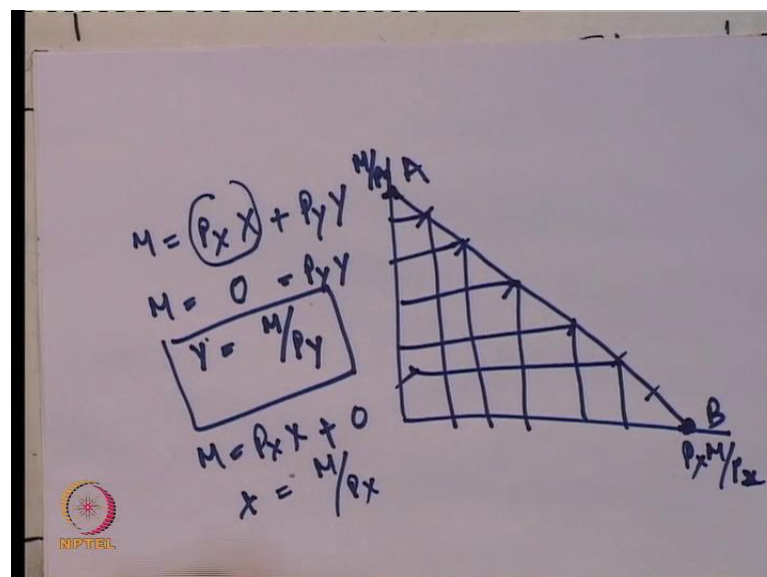 M = P_X X + P_Y Y
M = 0 = P_Y Y
Y = M/P_Y
M = P_X X + 0
X = M/P_X
M/P_Y A
B
P_X M/P_X
NPTEL